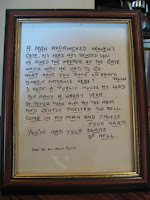 A MAN APPROACHED HEAVEN'S
GATE, HIS HEAD WAS BENDED LOW
HE ASKED THE KEEPER AT THE GATE
WHICH WAY HE HAD TO GO
WHAT HAVE YOU DONE ON EARTH
TO MERIT ENTRANCE HERE?
I KEPT A PUBLIC HOUSE MY LORD
FOR MANY A WEARY YEAR.
ST PETER TOOK HIM BY THE ARM
AND GENTLY TOLLED THE BELL
COME IN MY MAN AND CHOOSE
YOUR HARP
YOU'VE HAD YOUR SHARE
OF HELL.